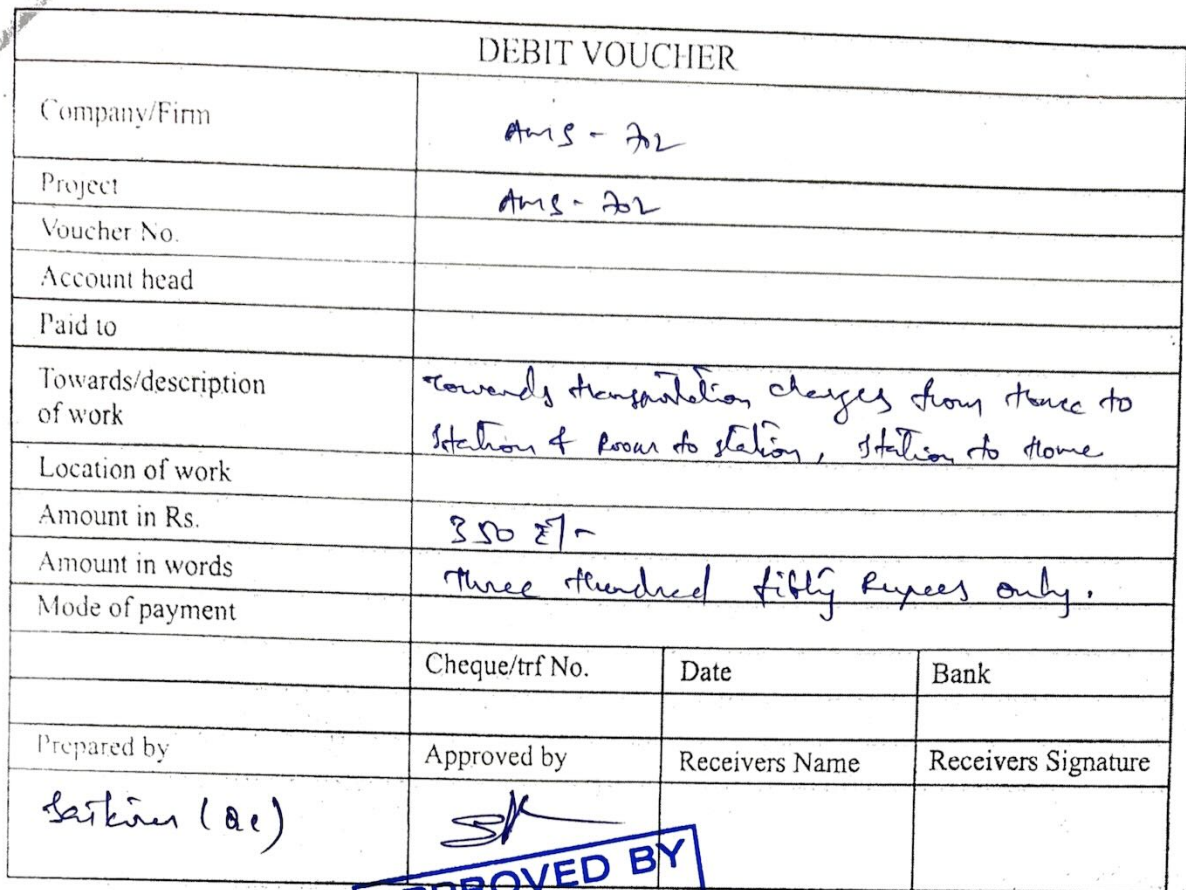 DEBIT VOUCHER
Company/Firm
AMS - 702
Project
AMS - 702
Voucher No.
Account head
Paid to
Towards/description
of work
Towards transportation charges from to
Station & Room to station, Station to Home
Location of work
Amount in Rs.
350 ₹/-
Amount in words
Three Hundred fifty Rupees only.
Mode of payment
Cheque/trf No. Date Bank
Prepared by Approved by Receivers Name Receivers Signature
Saikiran
APPROVED BY